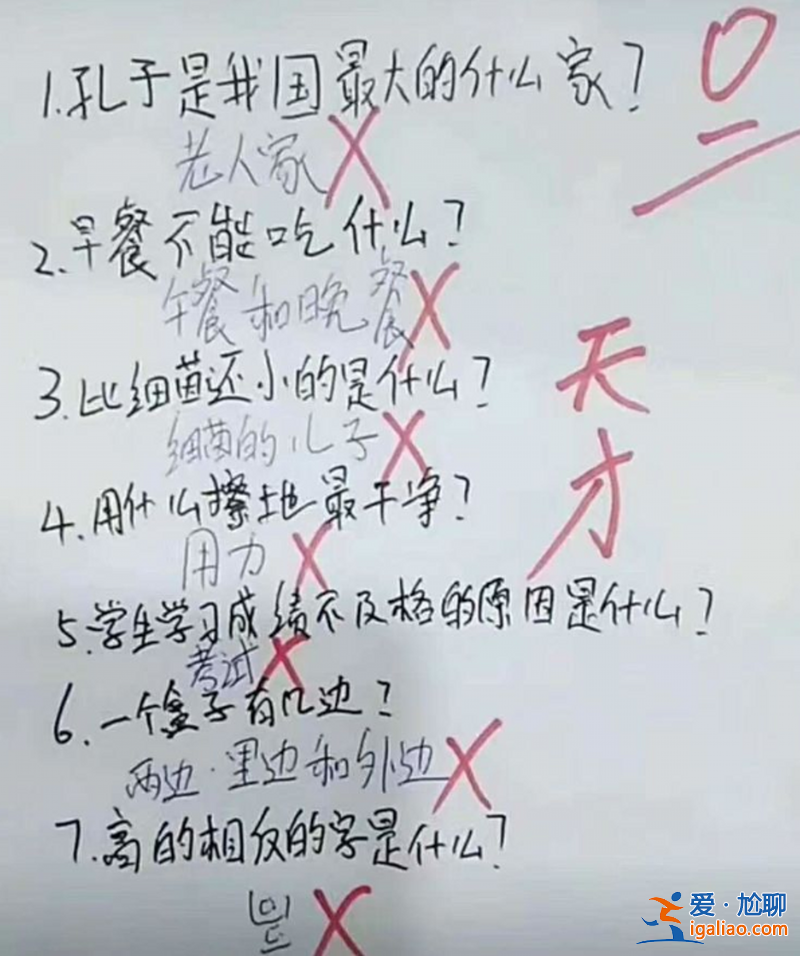 1.孔子是我国最大的什么家?
0
老人家
2.早餐不能吃什么?
午餐和晚餐
3.比细菌还小的是什么?
天才
细菌的儿子
4.用什么擦地最干净?
用力
5.学生学习成绩不及格的原因是什么?
考试
6.一个盒子有几边?
两边.里边和外边
7.高的相反的字是什么?
爱·尬聊
igaliao.com